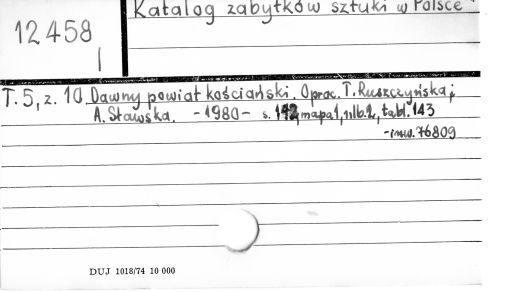 Katalog zabytków sztuki w Polsce
12458
I
T. 5, z. 10. Dawny powiat kościański. Oprac. T. Ruszczyńska i
A. Sławska. -1980- s. 142, mapa 1, nlb. 2, tabl. 143
-inw. 76809
DUJ 1018/74 10 000